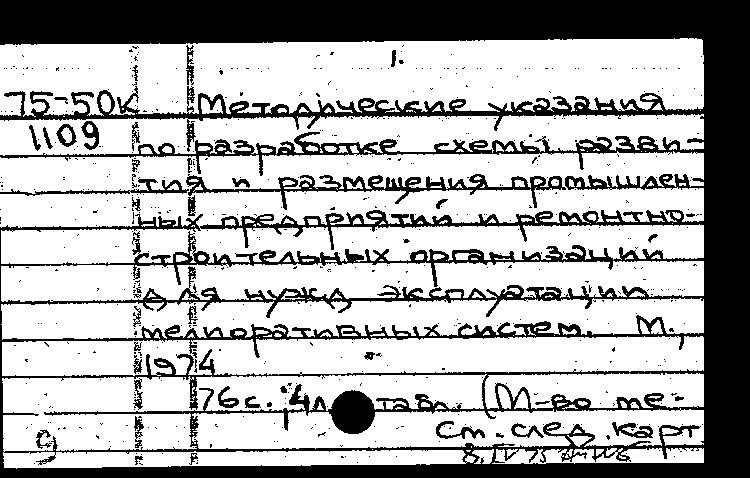 1.
75-50к Методические указания
1109 по разработке схемы разви-
тия и размещения промышлен-
ных предприятий и ремонтно-
строительных организаций
для нужд эксплуатации
мелиоративных систем. М.,
1974
76с. 4л табл. (М-во ме-
9 См. след. карт
8.IV 75